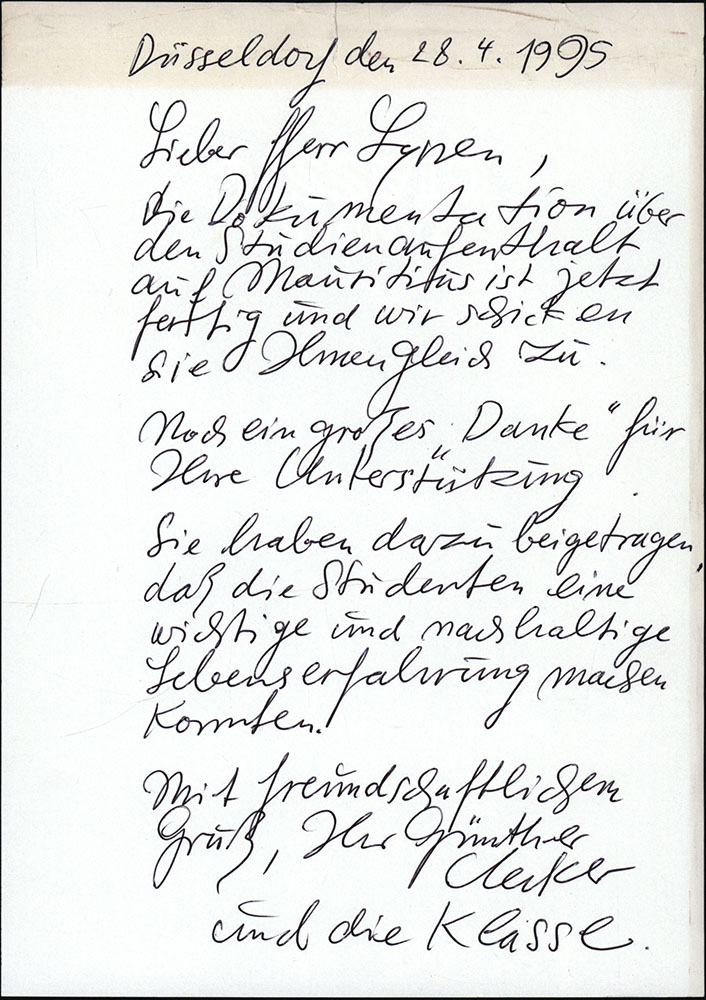 Düsseldorf den 28.4.1995
Lieber Herr Lynen,
die Dokumentation über
den Studienaufenthalt
auf Mauritius ist jetzt
fertig und wir schicken
sie Ihnen gleich zu.
Noch ein großes „Danke“ für
Ihre Unterstützung.
Sie haben dazu beigetragen,
daß die Studenten eine
wichtige und nachhaltige
Lebenserfahrung machen
konnten.
Mit freundschaftlichem
Gruß, Ihr Günther
Uecker
und die Klasse.